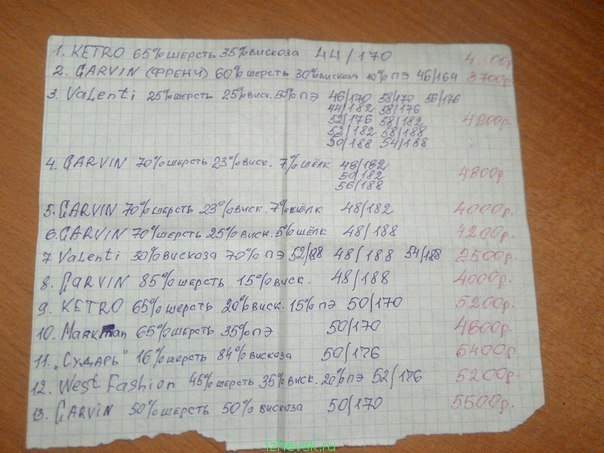 1. KETRO 65% шерсть 35% вискоза 44/170
2. GARVIN (ФРЕНЧ) 60% шерсть 30% вискоза 10% ПЭ 46/164 3700р
3. Valenti 25% шерсть 25% виск. 50% ПЭ 46/170 58/170 56/176
44/182 58/176
52/176 58/182 4200р
52/182 58/188
50/188 54/188
4. GARVIN 70% шерсть 23% виск. 7% шёлк 48/182
50/182 4800р.
56/188
5. GARVIN 70% шерсть 23% виск. 7% шёлк 48/182 4000р.
6. GARVIN 70% шерсть 25% виск. 5% шёлк 48/188 4200р.
7. Valenti 30% вискоза 70% ПЭ 52/88 48/188 54/188 2500р
8. GARVIN 85% шерсть 15% виск. 48/188 4000р.
9. KETRO 65% шерсть 20% виск. 15% ПЭ 50/170 5200р
10. Markman 65% шерсть 35% ПЭ 50/170 4800р.
11. "СУДАРЬ" 16% шерсть 84% вискоза 50/176 6400р
12. West Fashion 45% шерсть 35% виск. 20% ПЭ 52/176 5200р.
13. GARVIN 50% шерсть 50% вискоза 50/170 5500р
izhevsk.ru